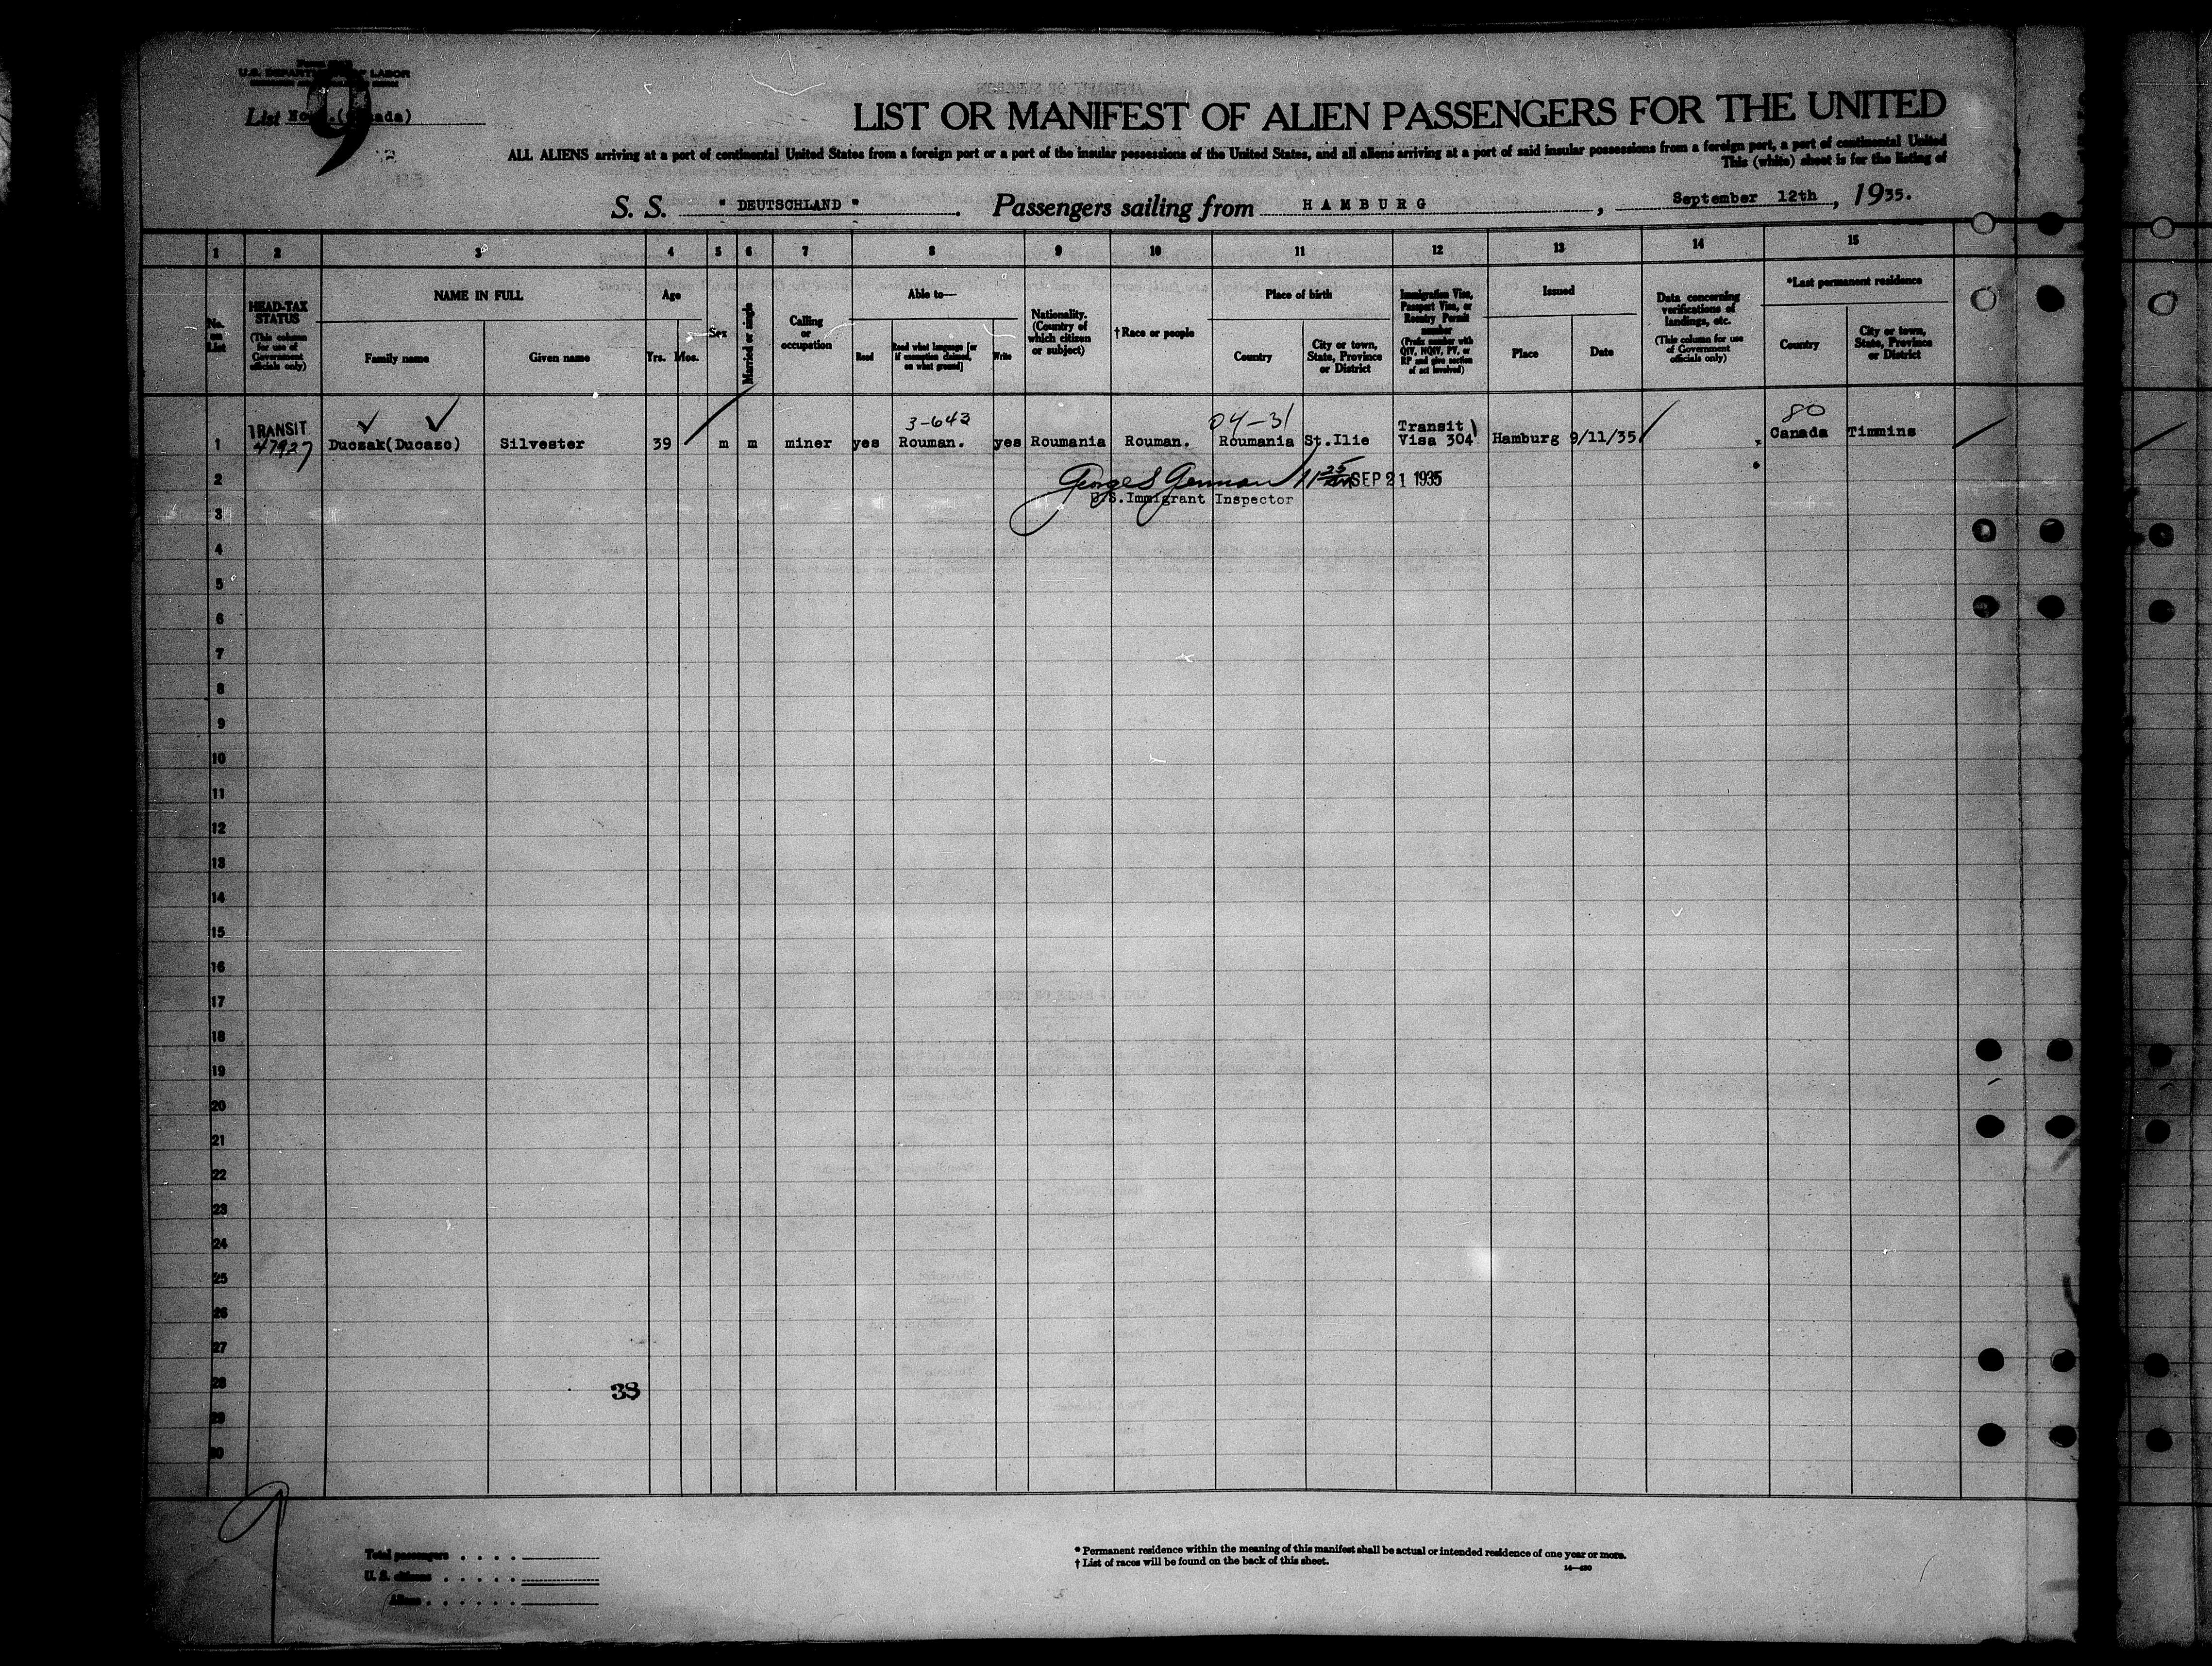 U.S. DEPARTMENT OF LABOR
9
List No.
LIST OR MANIFEST OF ALIEN PASSENGERS FOR THE UNITED
ALL ALIENS arriving at a port of continental United States from a foreign port or a port of the insular possessions of the United States, and all aliens arriving at a port of said insular possessions from a foreign port, a part of continental United
This (white) sheet is for the listing of
S. S. " DEUTSCHLAND " . Passengers sailing from HAMBURG , September 12th , 1935.
1 2 3 4 5 6 7 8 9 10 11 12 13 14 15
No. on List
HEAD-TAX STATUS
(This column for use of Government officials only)
NAME IN FULL
Family name
Given name
Age
Yrs. Mos.
Sex
Married or single
Calling or occupation
Able to—
Read
Read what language [or if exemption claimed, on what ground]
Write
Nationality. (Country of which citizen or subject)
† Race or people
Place of birth
Country
City or town, State, Province or District
Immigration Visa, Passport Visa, or Reentry Permit number
(Prefix number with QIV, NQIV, PV, or RP and give section of act involved)
Issued
Place
Date
Data concerning verifications of landings, etc.
(This column for use of Government officials only)
*Last permanent residence
Country
City or town, State, Province or District
3-643 04-31 80
TRANSIT Transit
1 47927 Ducsak(Ducaso) Silvester 39 m m miner yes Rouman. yes Roumania Rouman. Roumania St.Ilie Visa 304 Hamburg 9/11/35 Canada Timmins
2 George S German 11 25 AM SEP 21 1935
U.S.Immigrant Inspector
3
4
5
6
7
8
9
10
11
12
13
14
15
16
17
18
19
20
21
22
23
24
25
26
27
28 38
29
30
9
Total passengers
U. S. citizens
Aliens
* Permanent residence within the meaning of this manifest shall be actual or intended residence of one year or more.
† List of races will be found on the back of this sheet.